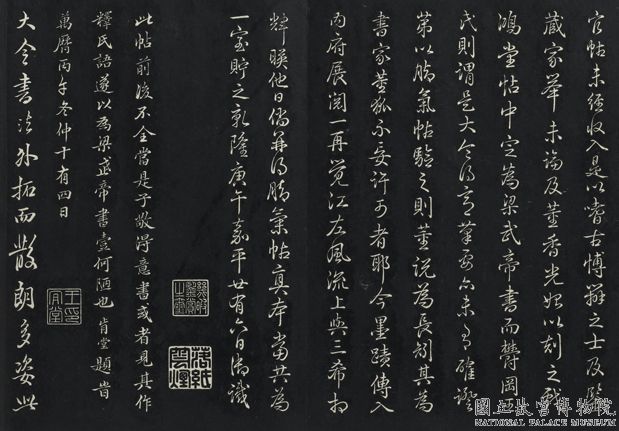 官帖未經收入是以嗜古博雅之士及鑒
藏家舉未論及董香光始以刻之戲
鴻堂帖中定為梁武帝書而鬱岡王
氏則謂是大令得意筆要亦未有確證
第以腦氣帖驗之則董說為長矧其為
書家董狐不妄許可者耶今墨蹟傳入
內府展閱一再覺江左風流上與三希相
輝暎他日倘并得腦氣帖真本當共為
一室貯之乾隆庚午嘉平廿有六日御識
此帖前後不全當是子敬得意書或者見其作
釋氏語遂以為梁武帝書壹何陋也肯堂題旹
萬曆丙午冬仲十有四日
大令書法外拓而散朗多姿此
國立故宮博物院
NATIONAL PALACE MUSEUM